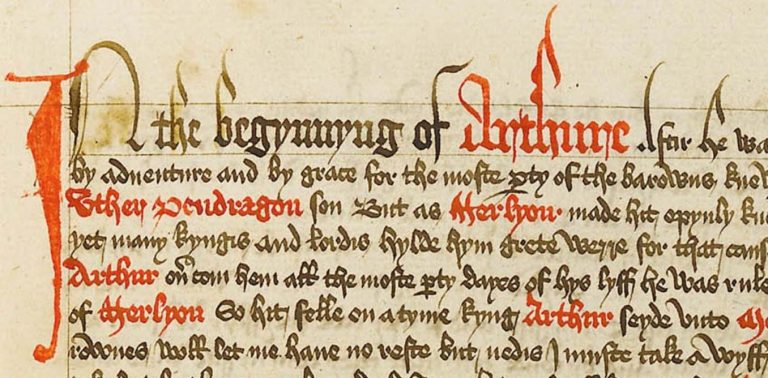 In the begynnyng of Arthure Aftir he wa
by adventure and by grace for the moste pty of the barowns knew
Uther Pendragon son But as Merlyon made hit opynly kn
yet many kyngis and lordis hylde hym grete werre for that caus
Arthur on com hem all the moste pty dayes of hys lyff he was rule
of Merlyon So hit felle on a tyme kyng Arthur seyde unto M
rownes woll let me have no reste but nedis I muste take a wyff